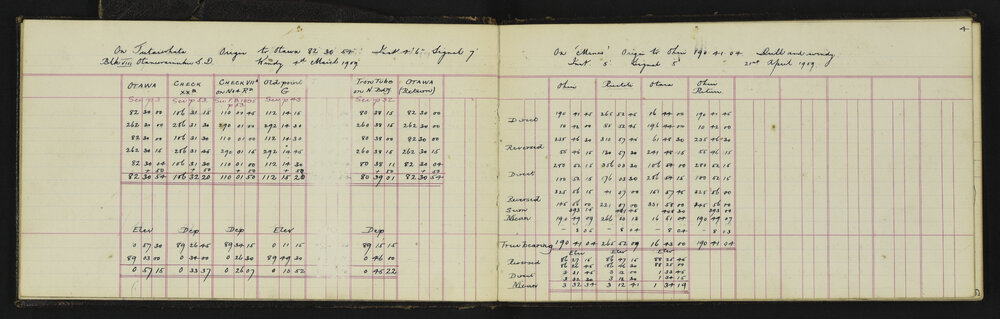 On Tutaiwhata Origin to Otawa 82 30 54 Inst 4' 6" Signal 7'
Blk VIII Otanewainuku S.D. Windy 4th March 1909
OTAWA CHECK XXA CHECK VIIA on No 4 Rd Old point G Iron Tube on N. Bdy OTAWA (Return)
See p 3 See p 53 See F.B. 1805 p 53 See p 43 See p 52
82 30 00 106 31 15 110 00 45 112 14 15 80 38 15 82 30 00
262 30 00 286 31 30 290 01 00 292 14 30 260 38 15 262 30 00
82 30 00 106 31 30 110 01 00 112 14 30 80 38 00 82 30 00
262 30 15 286 31 45 290 01 15 292 14 45 260 38 15 262 30 15
82 30 04 106 31 30 110 01 00 112 14 30 80 38 11 82 30 04
+ 50 + 50 + 50 + 50 + 50 + 50
82 30 54 106 32 20 110 01 50 112 15 20 80 39 01 82 30 54
Elev Dep Dep Elev Dep
0 57 30 89 26 45 89 34 15 0 11 15 89 15 15
89 03 00 0 34 00 0 26 30 89 49 30 0 46 00
0 57 15 0 33 37 0 26 07 0 10 52 0 45 22
4
On 'Manes' Origin to Ohui 190 41 04. Dull and windy
Inst 5' Signal 5' 21st April 1909
Ohui Otara Ohui Return
Direct 190 41 45 265 52 45 16 44 00 190 41 45
10 42 00 85 52 45 196 44 00 10 42 00
Reversed 235 46 30 310 57 45 61 48 30 235 46 30
55 46 15 130 57 30 241 48 45 55 46 15
Direct 280 52 15 356 03 30 106 54 00 280 52 15
100 52 15 176 03 30 286 54 15 100 52 15
Reversed 325 56 15 41 07 00 151 57 45 325 56 00
145 56 00 221 07 00 331 58 00 145 56 00
Sum
Mean 190 49 09 266 00 13 16 51 04 190 49 07
- 8 05 - 8 04 - 8 04 - 8 03
True bearing 190 41 04 265 52 09 16 43 00 190 41 04
Elev Elev Elev
Reversed 86 27 15 86 47 15 88 25 45
86 26 45 86 46 30 88 25 00
Direct 3 31 45 3 12 00 1 33 45
3 32 30 3 12 30 1 34 15
Mean 3 32 34 3 12 41 1 34 19